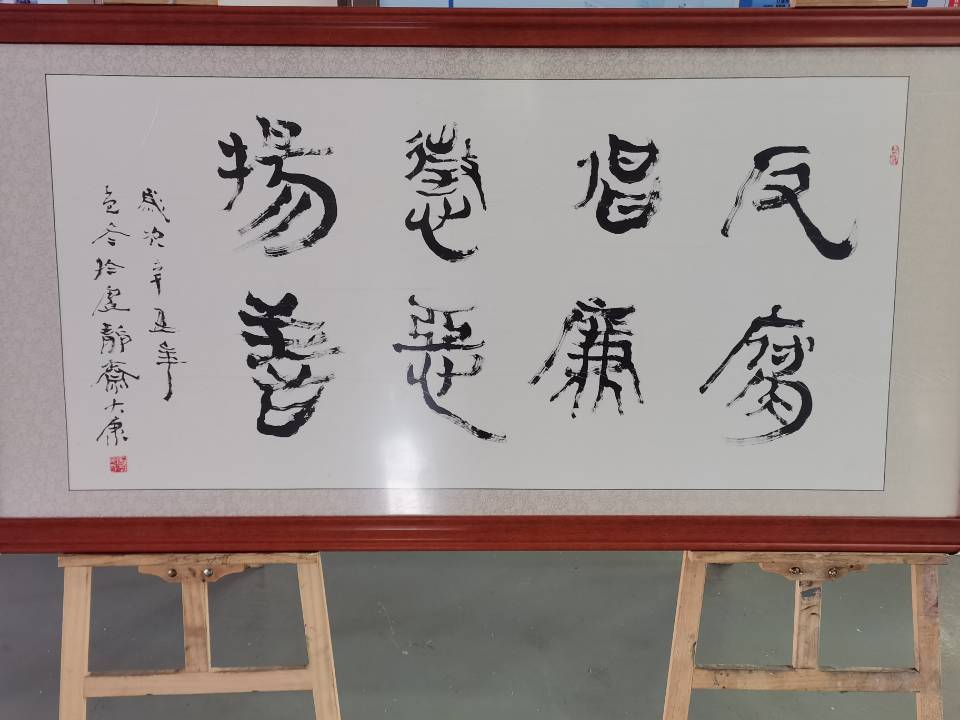 反腐
倡廉
懲惡
揚善
歲次辛丑年
冬於虛靜齋大康